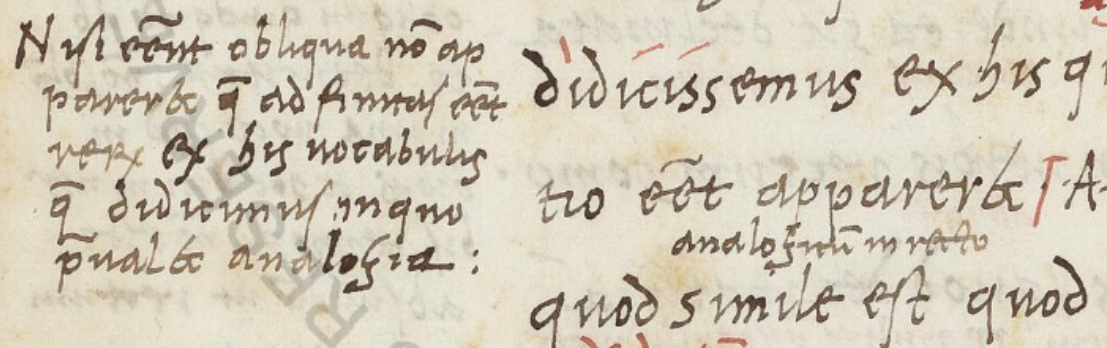 Nisi eēnt obliqua nō ap
parer& q̄ ad finitas eēt
rerx ex his vocabulis
q̄ didicimus in quo
p̄ual& analogia :
didicissemus ex his q
tio eēt apparer& A
analogicū in recto
quod simile est quod